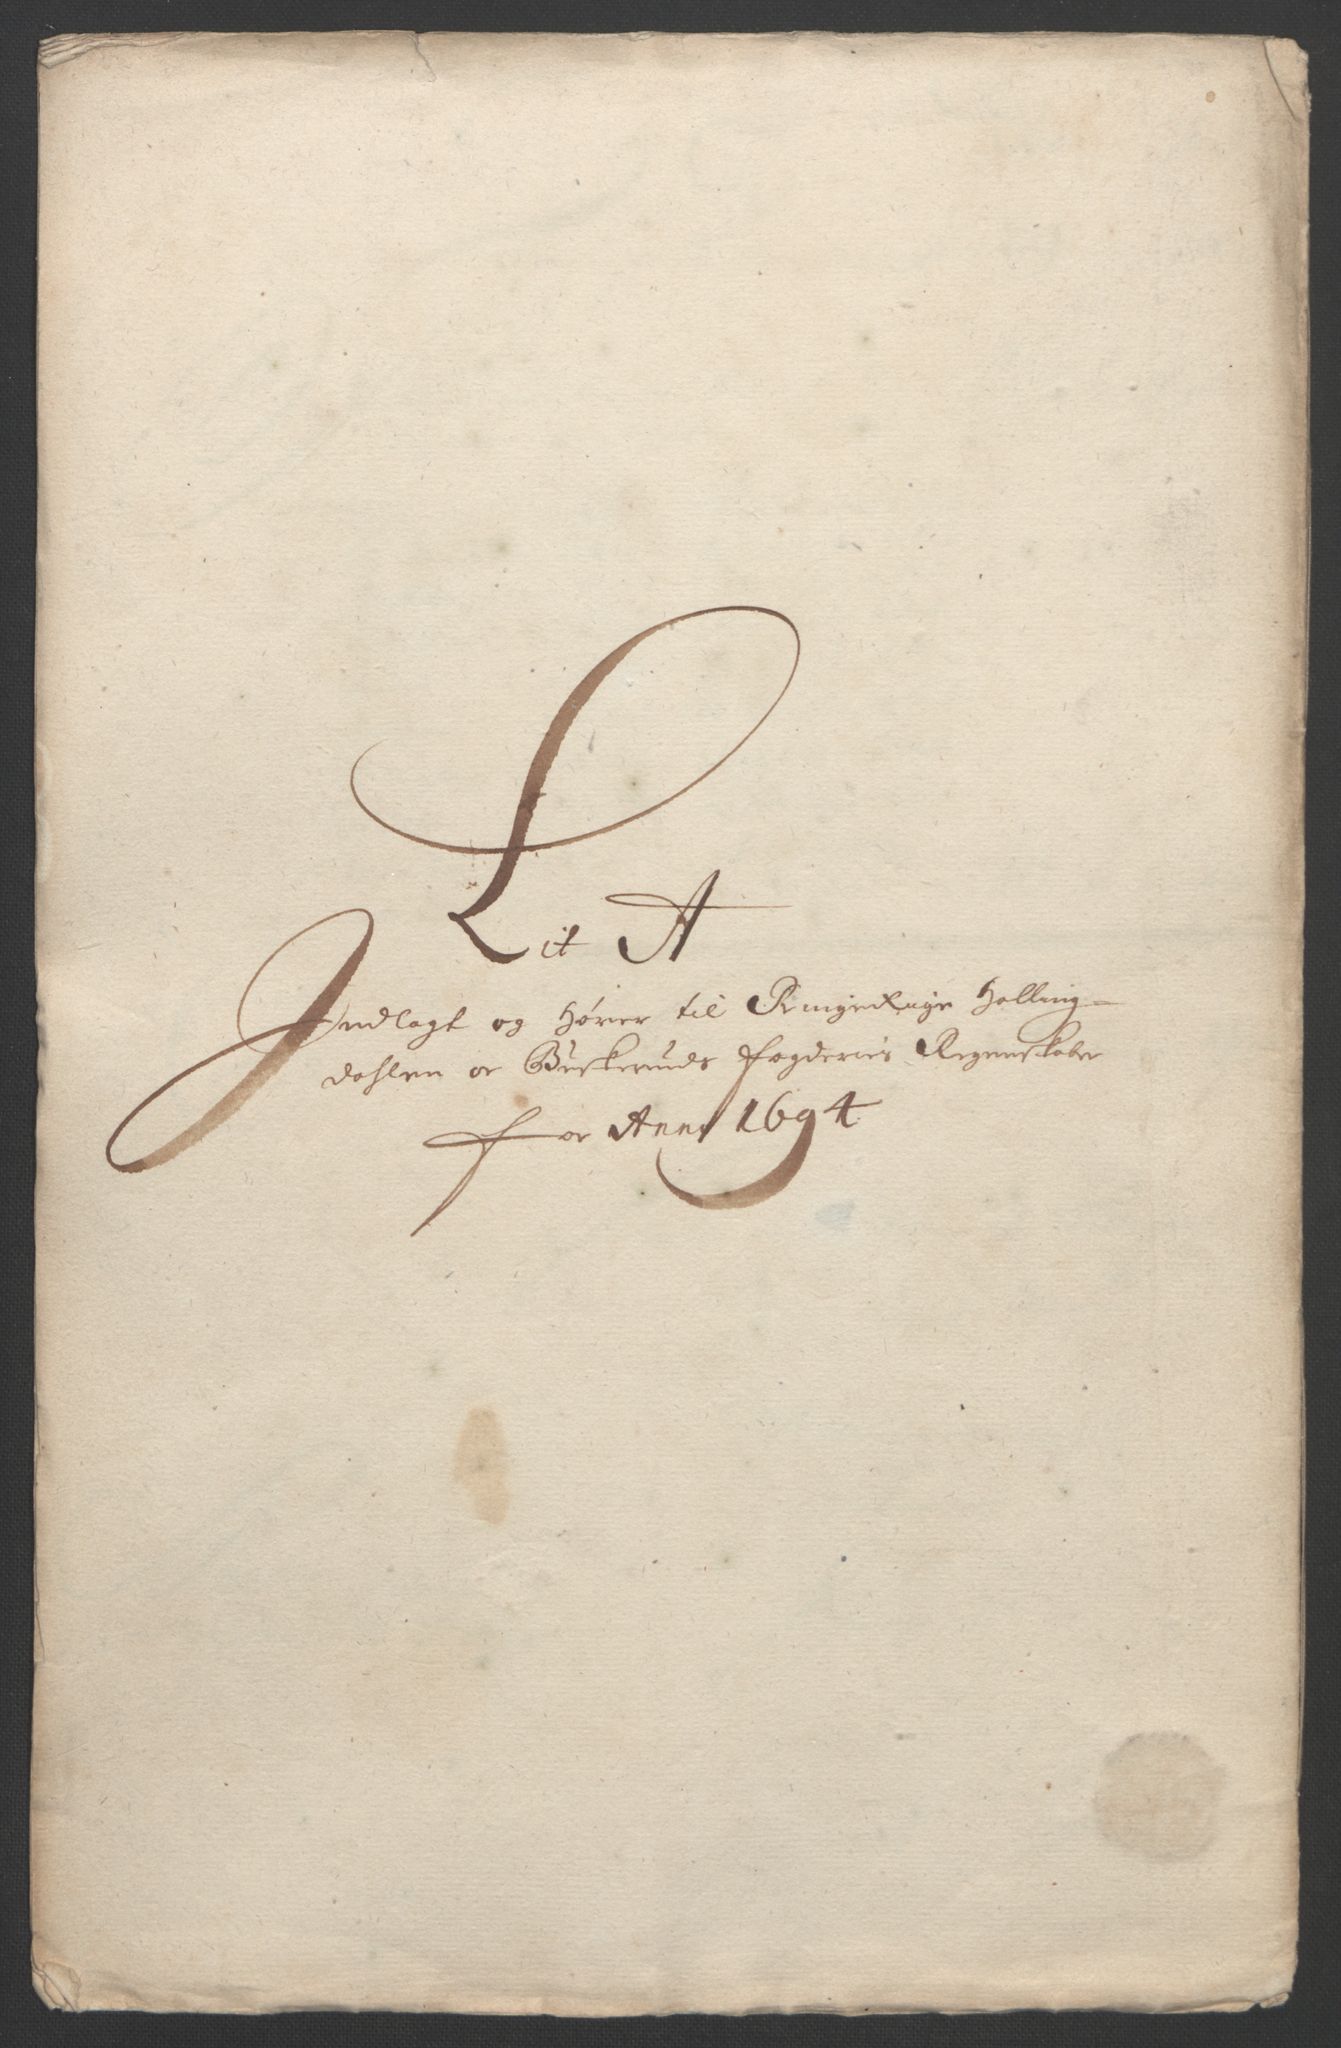 Lit A
Indlagt og hører til Ringerige Halling-
dahlen oc Buskeruds fogderies Regenskaber
for Anno 1694